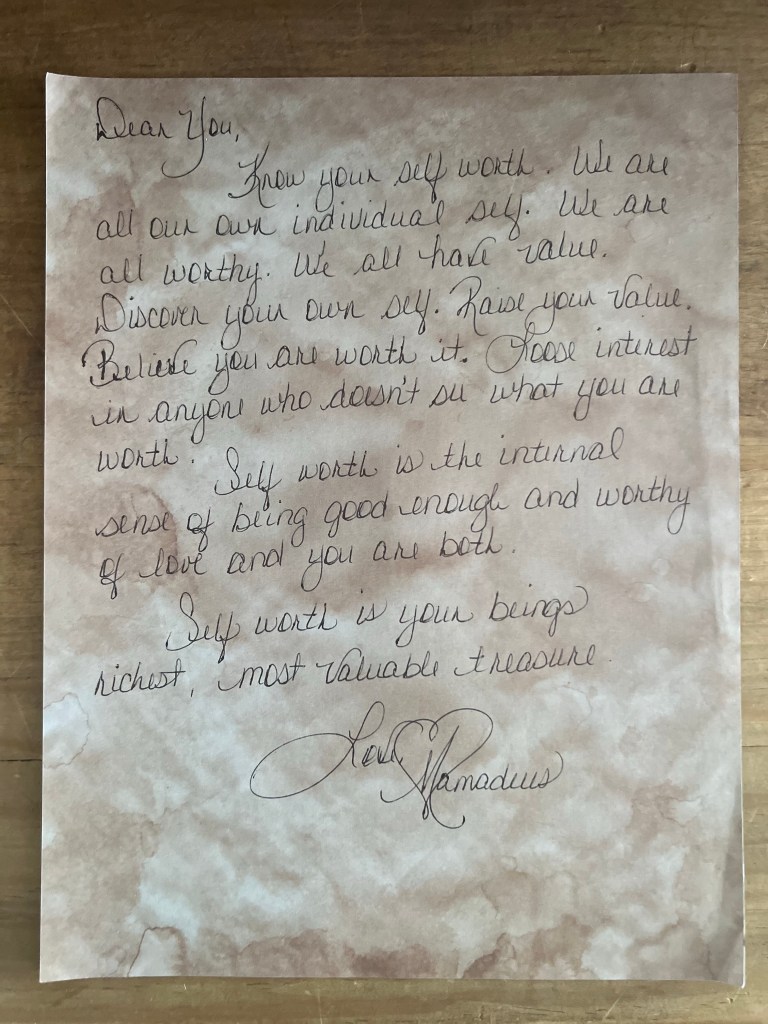 Dear You,
Know your self worth. We are
all our own individual self. We are
all worthy. We all have value.
Discover your own self. Raise your value.
Believe you are worth it. Loose interest
in anyone who doesn't see what you are
worth.
Self worth is the internal
sense of being good enough and worthy
of love and you are both.
Self worth is your beings
richest, most valuable treasure.
Love,